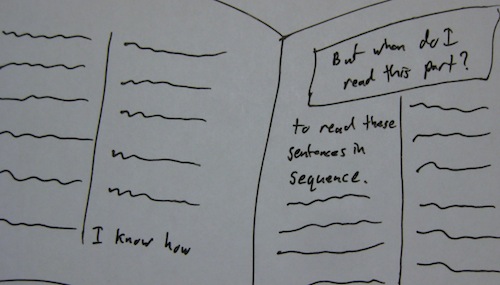 I know how
But when do I
read this part?
to read these
sentences in
sequence.